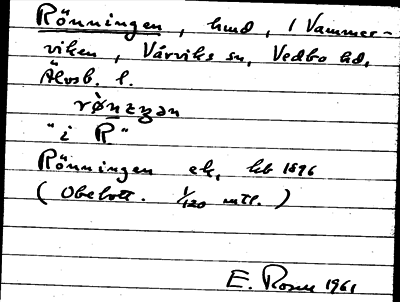 Rönningen, hmd, 1 Vammer-
viken, Vårviks sn, Vedbo hd,
Älvsb. l.
"i R"
Rönningen ek, kb 1896
(Obebott. 1/120 mtl.)
E. Rosell 1961